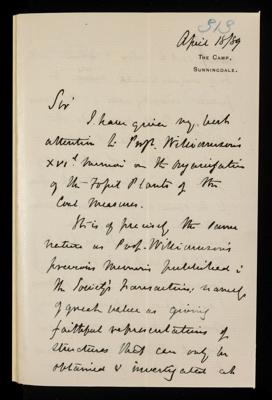 313
April 18/89
THE CAMP,
SUNNINGDALE.
Sir
I have given my best
attention to Profr. Williamson's
XVIth. Memoir on the Organisation
of the Fossil Plants of the
Coal Measures.
It is of precisely the same
nature as Prof. Williamson's
previous Memoirs published in
the Society's Transactions, namely,
of great value as giving
faithful representations of
structures that can only be
obtained & investigated at